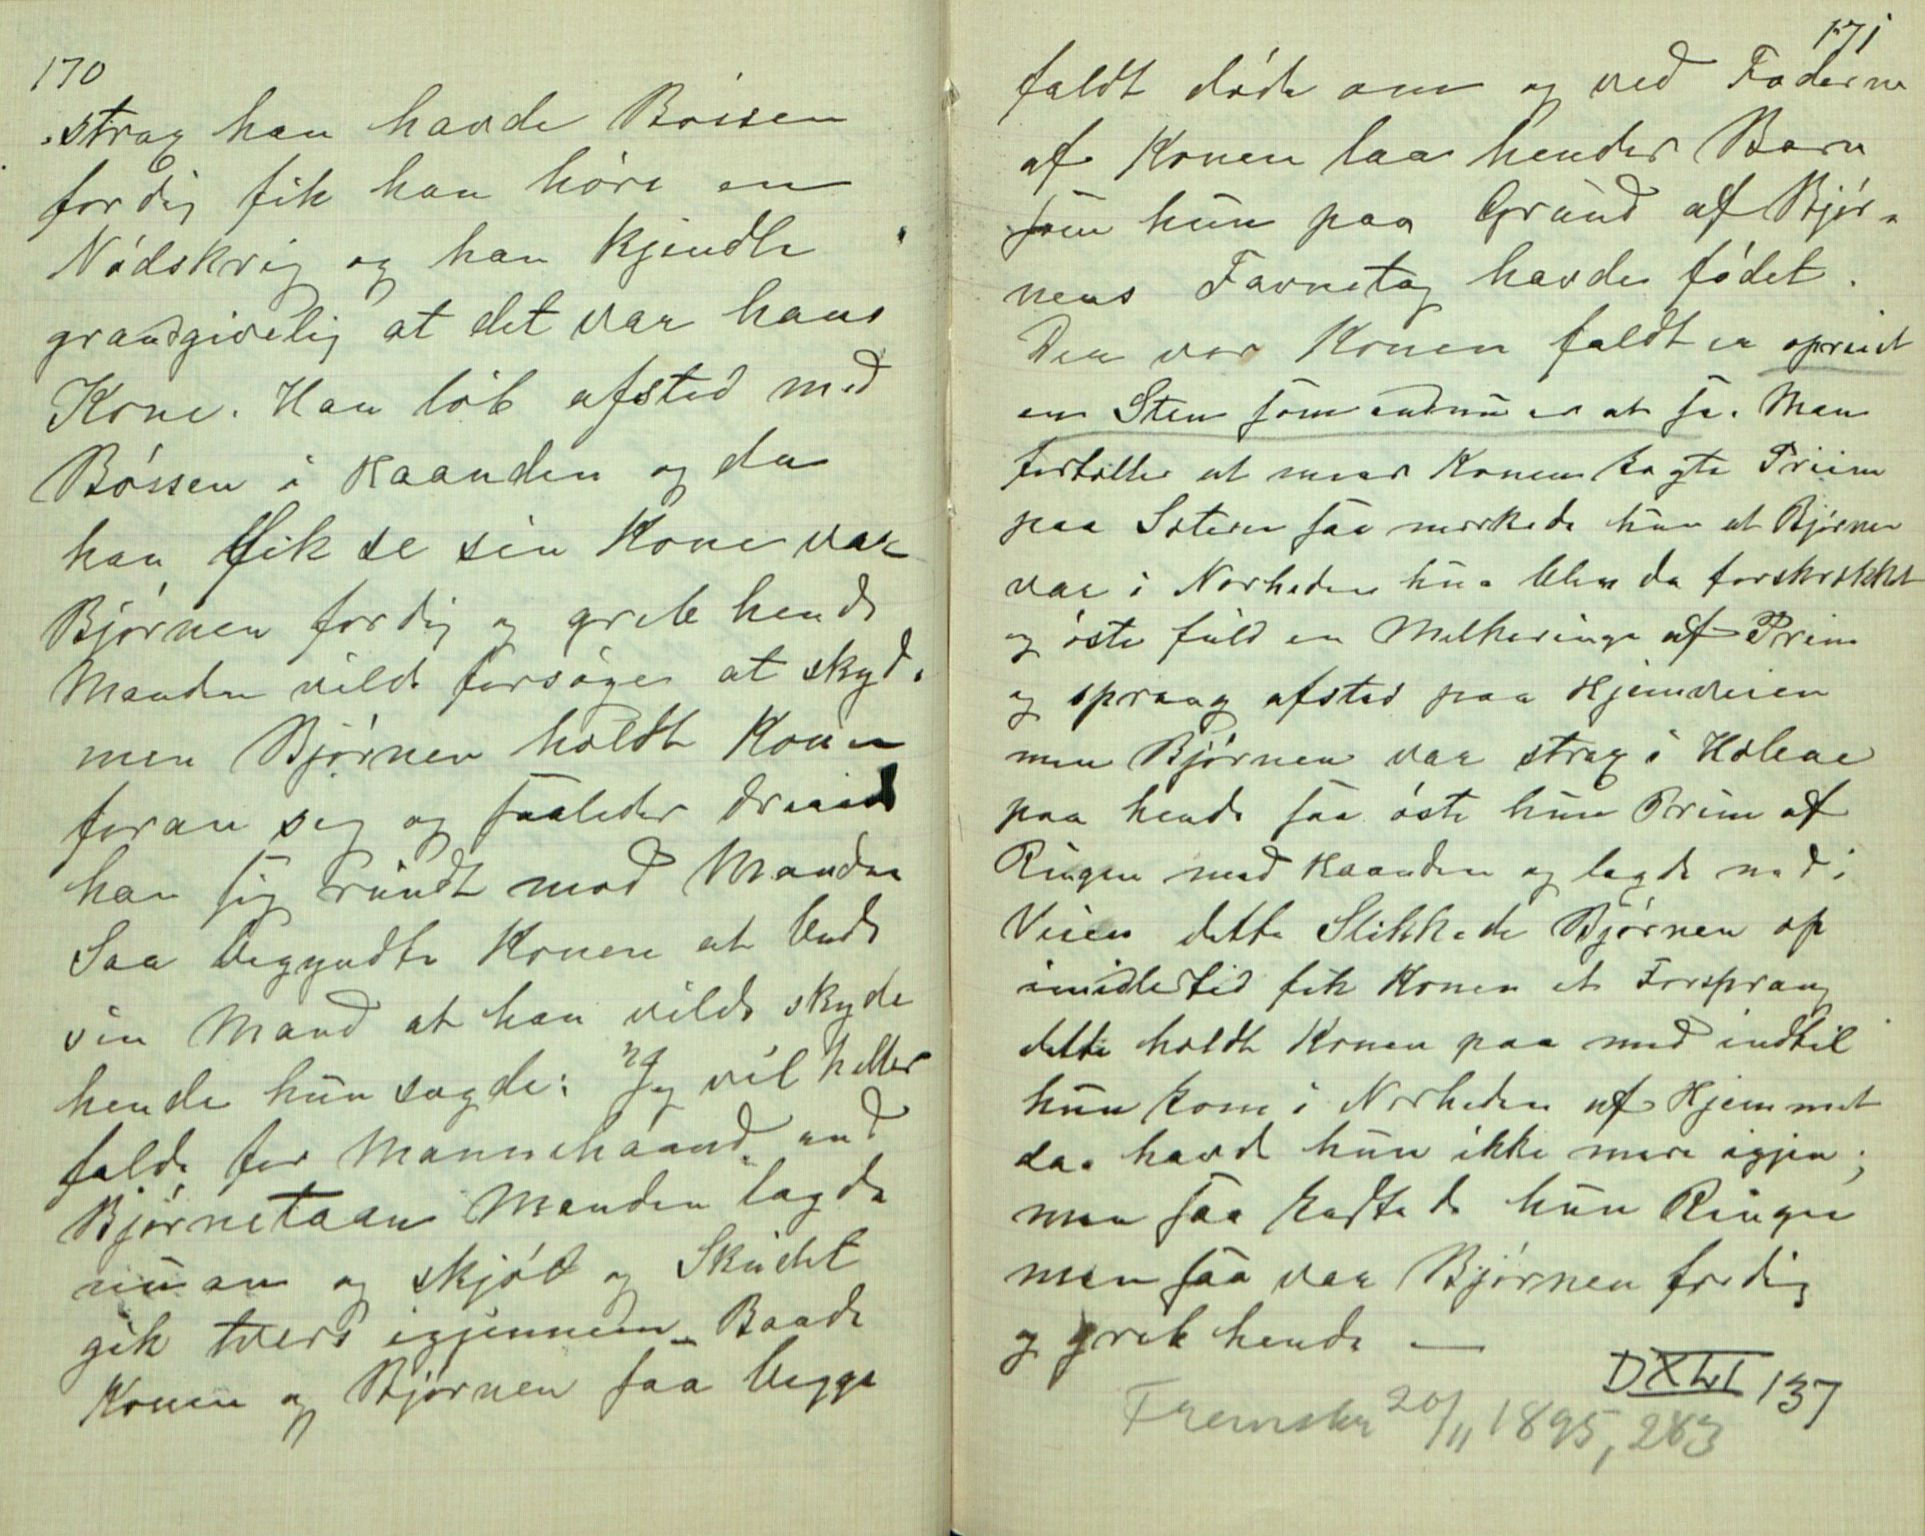 170
strax han havde Bøssen
fordig fik han høre en
Nødskrig og han kjendte
grandgivelig at det var hans
Kone. Han løb afsted med
Bøssen i Haanden og da
han fik se sin Kone var
Bjørnen fordig og greb hende
Manden vilde forsøge at skyde
men Bjørnen holdt Konen
foran sig og saaledes
han sig rundt mod Manden
Saa begyndte Konen at bede
sin Mand at han vilde skyde
hende hun sagde: "Jeg vil heller
falde for Mannehaand end
Bjørnetaan Manden lagde
nu an og skjød og Skudet
gik tvers igjennem Baade
Konen og Bjørnen saa begge
171
faldt døde om og ved Føderne
af Konen laa hendes Barn
som hun paa Grund af Bjør-
nens Favnetag havde fødet.
Der vor Konen faldt er opreist
en Sten som endnu er at se. Man
fortæller at naar Konen kogte Priim
paa Sæteren saa merkede hun at Bjørnen
var i Nærheden hun blev da forskrækket
og øste fuld en Melkeringe af Prim
og sprang afsted paa Hjemveien
men Bjørnen var strax i Hælene
paa hende saa øste hun Prim af
Ringen med Haanden og lagde ned i
Veien dette Slikkede Bjørnen op
imidlertid fik Konen et Forsprang
dette holdt Konen paa med indtil
hun kom i Nærheden af Hjemmet
da havde hun ikke mere igjen;
men saa kastede hun Ringen
men saa var Bjørnen fordig
og greb hende —
DXLI 137
Fremskr 20/11 1895, 283